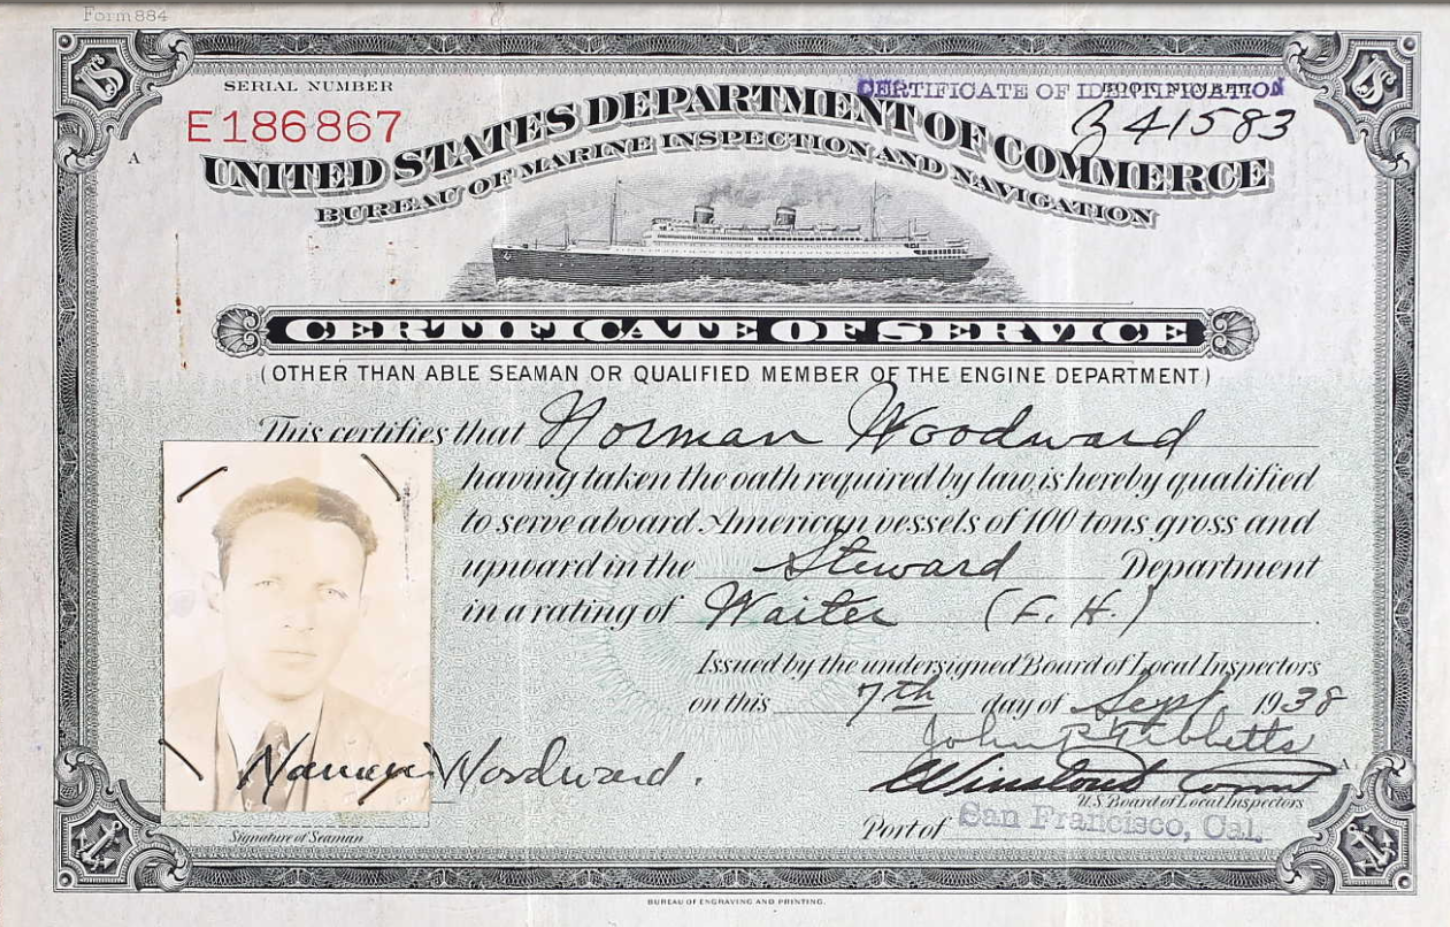 Form 884
SERIAL NUMBER
E186867
CERTIFICATE OF IDENTIFICATION
BOOK NUMBER
Z 41583
A
UNITED STATES DEPARTMENT OF COMMERCE
BUREAU OF MARINE INSPECTION AND NAVIGATION
CERTIFICATE OF SERVICE
(OTHER THAN ABLE SEAMAN OR QUALIFIED MEMBER OF THE ENGINE DEPARTMENT)
This certifies that Norman Woodward
having taken the oath required by law, is hereby qualified
to serve aboard American vessels of 100 tons gross and
upward in the Steward Department
in a rating of Waiter (F. H.)
Issued by the undersigned Board of Local Inspectors
on this 7th day of Sept. 1938
John P Tibbetts
Norman Woodward.
A
U.S. Board of Local Inspectors
Signature of Seaman
Port of San Francisco, Cal.
US
US
BUREAU OF ENGRAVING AND PRINTING.